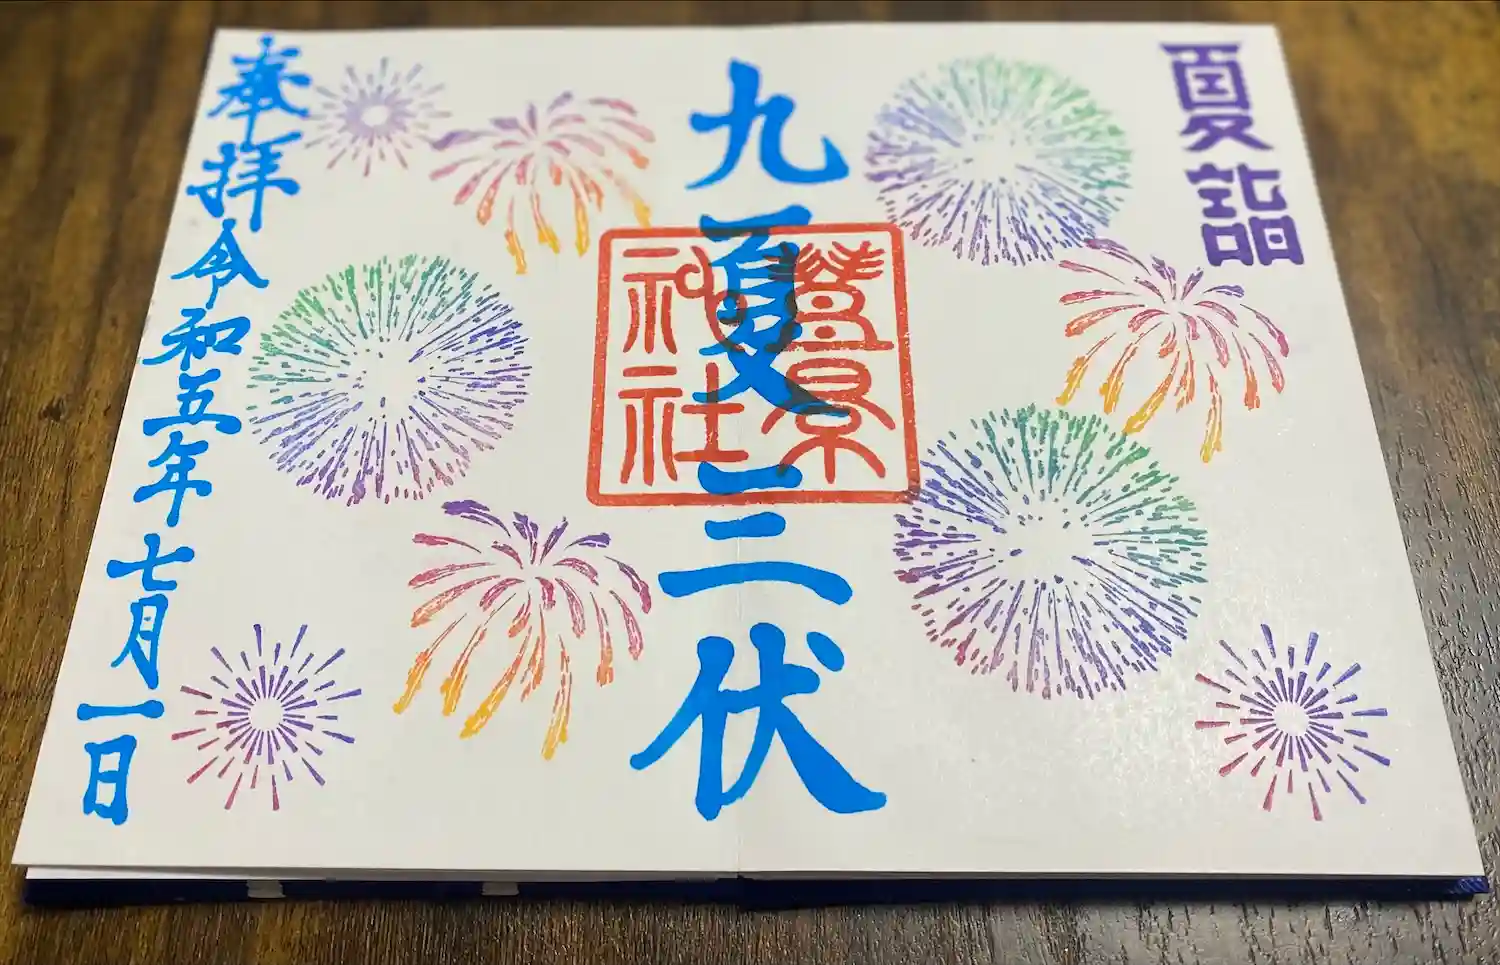 夏詣
九夏三伏
豊景
神社
奉拝 令和五年七月一日